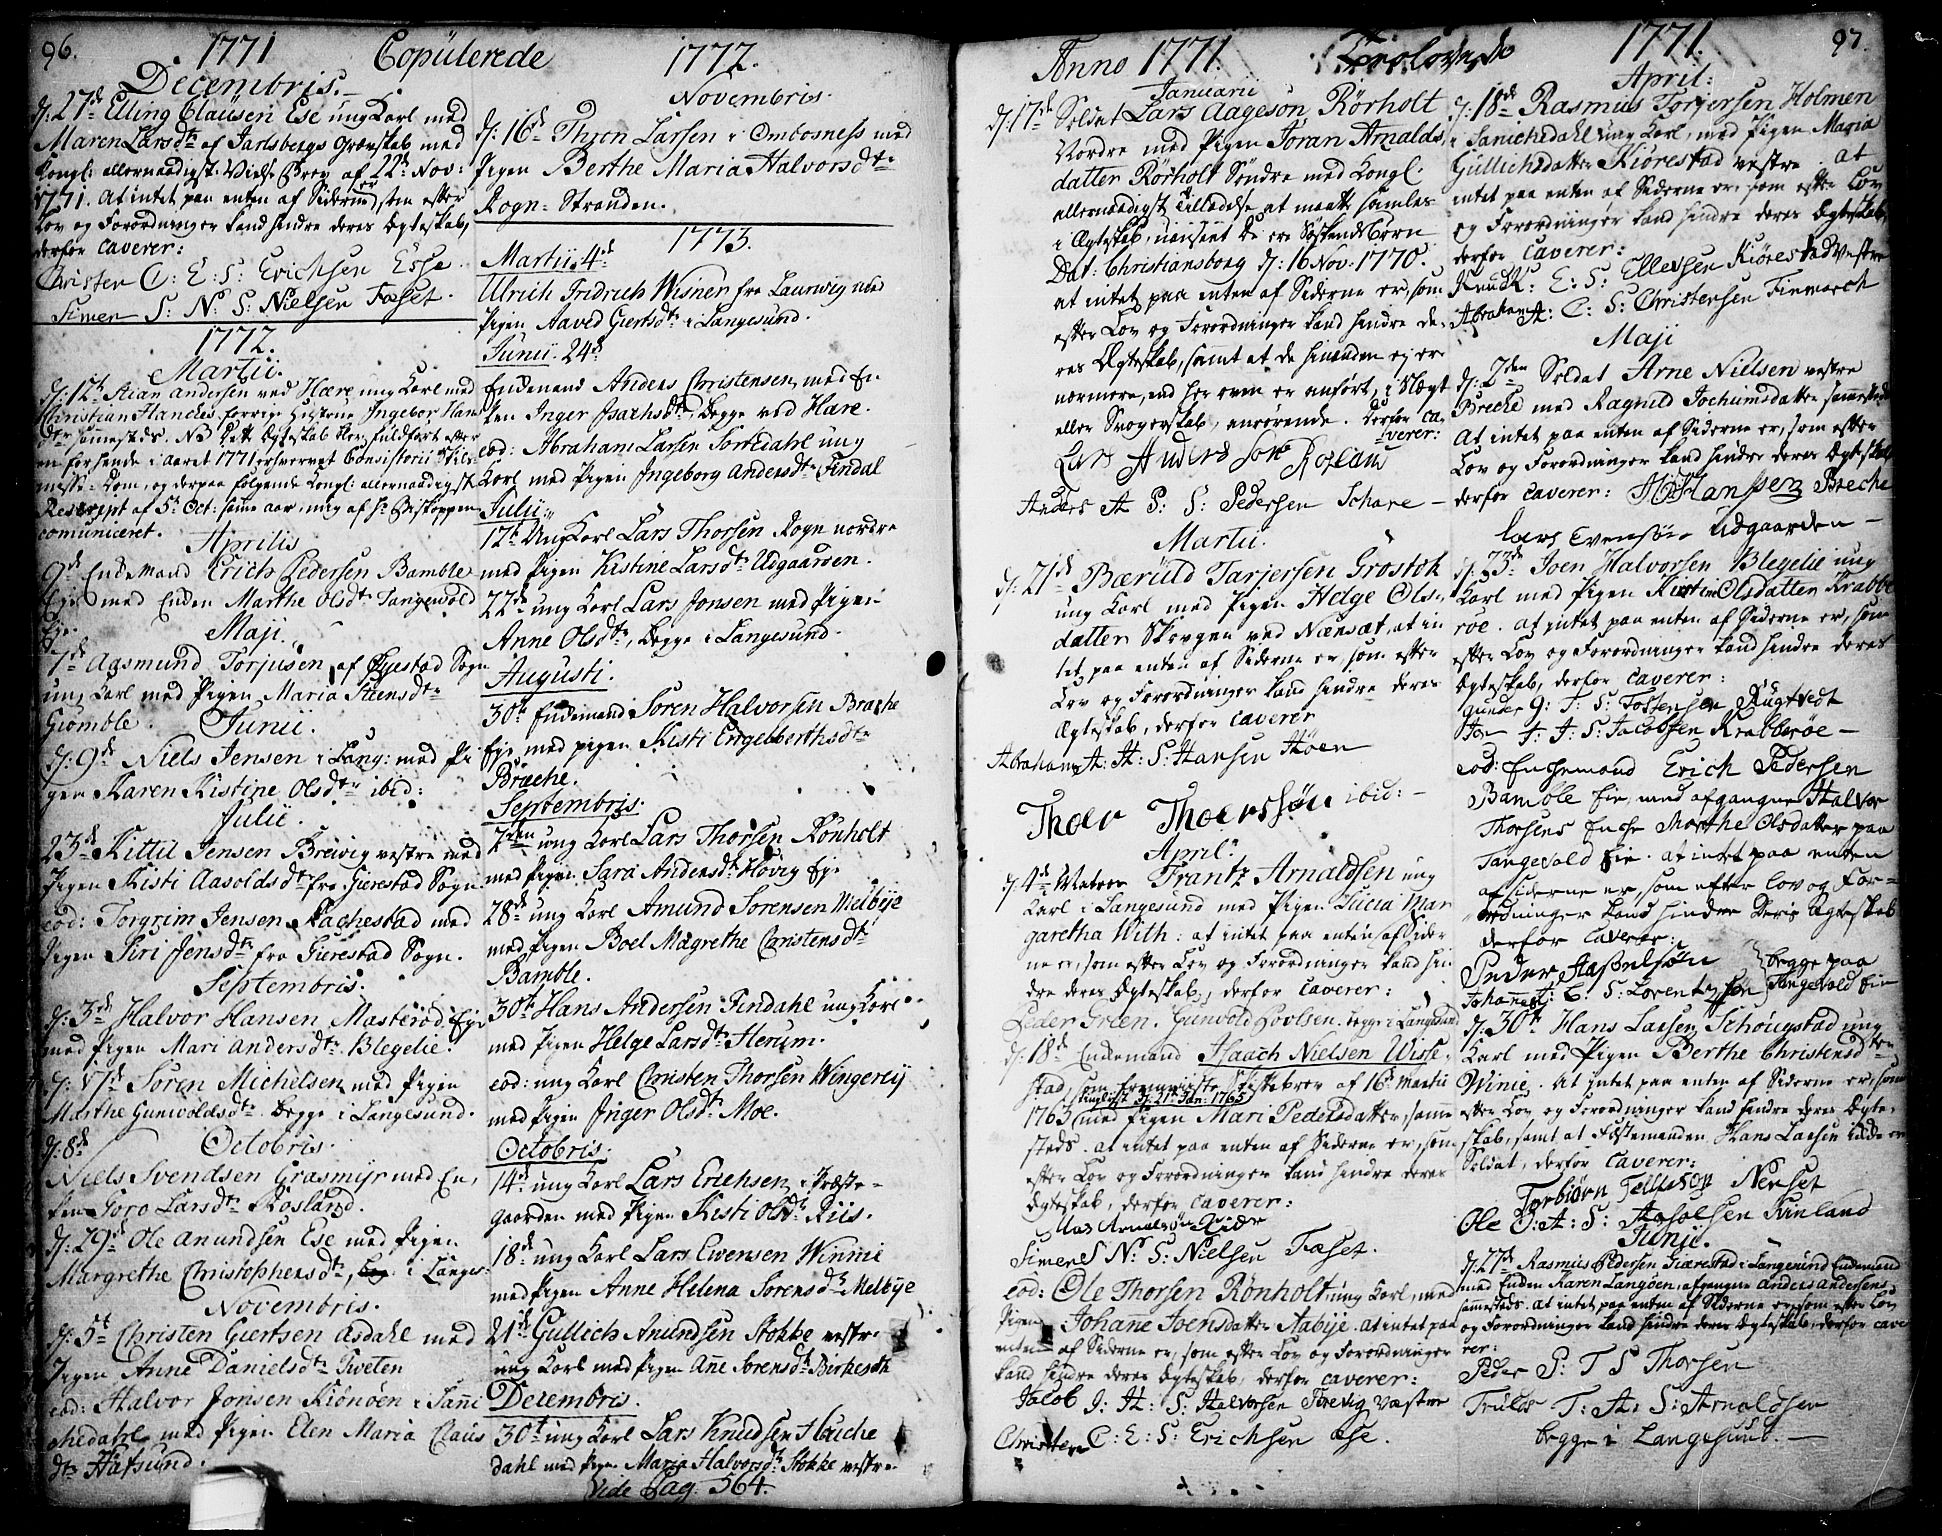 96. 1771 Copülerede 1772.
Decembris.
d: 27de Elling Claüsen Ese ung Karl med
Maren Larsdtr af Jarlsbergs Grevskab med
Kongl: allernaadigst Vielse Brev af 22de Nov:
1771. At intet paa enten af Siderne er, som efter
Lov og Forordninger kand hindre deres Egteskab,
derfor caverer:
Christen C: E: S: Erichsen Esse
Simen S: N: S: Nielsen Faset.
1772.
Martii.
d: 12te Andersen ved Hære ung Karl med
Christian Hanches forrige Hustrue Ingebor Han
dtr sammesteds. NB dette Egteskab blev fuldført efter
en forhende i aaret 1771 erhvervet Consistorii Skils
misse-Dom, og derpaa følgende Kongl: allernaadigst
Rescript af 5te Oct: samme aar, mig af Hr Biskoppen
comuniceret.
Aprilis
9de Enkemand Erich Pedersen Bamble
Eje med Enken Marthe Olsdtr Tangevold
Eje.
Maji.
7de Aasmund Torjusen af Sogn
ung Karl med Pigen Maria Steensdtr
Giømble.
Junii.
d: 9de Niels Jensen i Lang: med Pi
gen Karen Kistine Olsdtr ibid:
Julii.
23de Kittil Jensen Brewig vestre med
Pigen Kisti Aasoldsdtr fra Gierestad Sogn.
eod: Torgrim Jensen Rachestad med
Pigen Siri Jensdtr fra Gierestad Sogn.
Septembris.
d: 3de Halvor Hansen Masterød Eje
med Pigen Mari Andersdtr Blegelie.
d: 17de Soren Michelsen med Pigen
Marthe Gunwoldsdtr begge i Langesund.
d: 8de Octobris.
Niels Svendsen Grasmyr med En,
ken Toro Larsdtr Rosland.
d: 29de Ole Anundsen Ese med Pigen
Margrethe Christophersdtr, i Langes:
Novembris.
d: 5te Christen Giertsen Asdahl med
Pigen Anne Danielsdtr Tveten
eod: Halvor Jonsen Kiønøen i Sann
chedahl med Pigen Elen Maria Claus
dtr Hafsund.
Novembris.
d: 16de Thron Larsen i Ombosness med
Pigen Berthe Maria Halvorsdtr
Rogn-Stranden.
1773.
Martii 4de
Ulrich Fridrich Wisner fra Laurwig med
Pigen Aaved Giertsdtr i Langesund.
Junii. 24de
Enkemand Anders Christensen med En-
ken Inger Isachsdtr, begge ved Hære.
eod: Abraham Larsen Tortedahl ung
Karl med Pigen Ingeborg Andersdtr Findal
Julii.
12te Ung Karl Lars Thorsen Rogn nordre
med Pigen Kistine Larsdtr Udgaarden.
22de ung Karl Lars Jonsen med Pigen
Anne Olsdtr, begge i Langesund.
Augusti.
30te Enkemand Soren Halvorsen Brache
Eje med pigen Kisti Engelberthsdtr
Brache.
Septembris.
2den ung Karl Lars Thorsen Rönholt
med Pigen Sara Andersdtr Høvig Eje
28de ung Karl Amund Sorensen Melbye
med Pigen Boel Magrethe Christensdtr
Bamble.
30te Hans Andersen Findahl ung Karl
med Pigen Helge Larsdtr Herum.
eod: ung Karl Christen Thorsen Wingereij
med Pigen Inger Olsdtr Moe.
Octobris.
14de ung Karl Lars Erichsen i Præste-
gaarden med Pigen Kisti Olsdtr Riis.
18de ung Karl Lars Ewensen Winnie
med Pigen Anne Helena Sorensdtr Melbye
21de Gullich Anundsen Stokke vestre
ung Karl med Pigen Ane Sorensdtr Birkesdk
Decembris.
30te ung Karl Lars Knudsen Hauche
dahl med Pigen Maria Halvorsdtr Stokke vestre
Vide Pag: 564.
Anno 1771. Trolovede 1771. 97.
Januarii
d: 17de Soldat Lars Aageson Rörholt
Nordre med Pigen Joran Arnalds,
datter Rörholt Söndre med Kongl.
allernaadigst Tilladelse at maatte samles
i Ægteskab, uanseet de ere Søskendebørn
Dat: Christiansborg d: 16 Nov. 1770.
at intet paa enten af Siderne er, som
efter Lov og Forordninger kand hindre de,
res Ægteskab, samt at de hinanden ej er
nærmere, end her oven er anført, i Slægt
eller Svogerskab, anrørende. Derfor ca,
verer:
Lars Anderssøn Rosland
Anders A P: S: Pedersen Schare -
Martii.
d: 21de Bærüld Tarjersen Grostok
ung Karl med Pigen Helge Ols,
datter Skovgen ved Nænset, at in
tet paa enten af Siderne er, som efter
Lov og Forordninger kand hindre deres
Ægteskab, derfor caverer
Abraham A: H: S: Hansen Høen
Thoer Thoerssøn ibid: -
April:
d: 4de Matros Frantz Arnaldsen ung
Karl i Langesund med Pigen Lucia Mar
garetha With: at intet paa enten af Sider
ne er, som efter Lov og Forordninger kand hin
dre deres Ægteskab, derfor caverer:
Peder Green. Gunvold Povlsen. begge i Langesund
d: 18de Enkemand Isaach Nielsen Wisse,
stad, som fremviiste Skiftebrev af 16de Martii
tinglyst d: 21de Jan: 1765
1763 med Pigen Mari Pedersdatter, samme
steds. at intet paa enten af Siderne er, som
efter Lov og Forordninger kand hindre deres
Ægteskab, derfor caverer:
Mas Arnelsøn Eide
Simen S N: S: Nielsen Faset.
eod: Ole Thorsen Rönholt ung Karl, med
Pigen Johanne Joensdatter Aabije. at intet paa
enten af Siderne er, som efter Lov og Forordninger
kand hindre deres Ægteskab, derfor caverer:
Jacob J: H: S: Halvorsen Trevig væstre
Christen C: E: S: Erichsen Ese.
April:
d: 18de Rasmus Torjersen Holmen
i Sanichedahl ung Karl, med Pigen Maria
Gullichsdatter Kiørestad vestre. at
intet paa enten af Siderne er, som efter Lov
og Forordninger kand hindre deres Ægteskab,
derfor caverer:
Knud K: E: S: Ellevsen Kiørestad Vestre
Abraham A: C: S: Christensen Finmarch
Maji
d: 2den Soldat Arne Nielsen vestre
Breche med Ragnild Jochumsdatter sammesteds
At intet paa enten af Siderne er, som efter
Lov og Forordninger kand hindre deres Ægteskab
derfor caverer: Hanssen Breche
lars Evensøn Udgaarden -
d: 23de Joen Halvorsen Blegelie ung
Karl med Pigen Kirstin Olsdatter Krabbe
röe. at intet paa enten af Siderne er, som
efter Lov og Forordninger kand hindre deres
Ægteskab, derfor caverer:
Gunder G: T: S: Tostensen Rugtvedt
Jon J: J: S: Jacobsen Krabberøe -
eod: Enckemand Erich Pedersen
Bamble Eie, med afgangne Halvor
Thorsens Encke Marthe Olsdatter paa
Tangevold Eie. at intet paa enten
af siderne er, som efter lov og For-
ordninger kand hindre deris Ægteskab
derfor caverer:
Peder Haßelsön } begge paa
Johannes J: C: S: Lorentzsen } Tangevold Eie
d: 30te Hans Larsen Schougstad ung
Karl med Pigen Berthe Christensdtr
Winie. At intet paa enten af Siderne er, som
efter Lov og Forordninger kand hindre deres Ægte,
skab, samt at Fæstemanden Hans Larsen ikke er
Soldat, derfor caverer:
Torbiörn Tellefson Nenset
Ole O: A: S: Aasolsen Rinland
Junii.
d: 27de Rasmus Pedersen Giærestad i Langesund Enkemand
med Enken Karen Langøen, afgangne Anders Andersens
sammesteds. at intet paa enten af Siderne er, som efter Lov
og Forordninger kand hindre deres Ægteskab, derfor cave
rer:
Peder P: T S Thorsen
Truls T: A: S: Arnaldsen
begge i Langesund. -